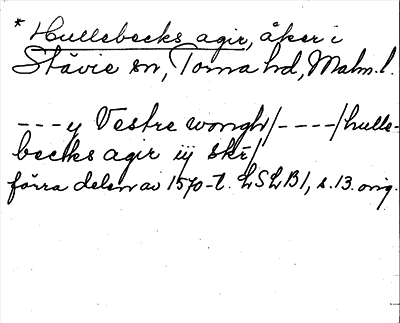 * Hullebecks agir, åker i
Stävie sn, Torna hd, Malm. l.
---y Vestre wongh/----/hulle-
becks agir iij skr/
förra delen av 1570-t. LSLB1, s. 13. orig.